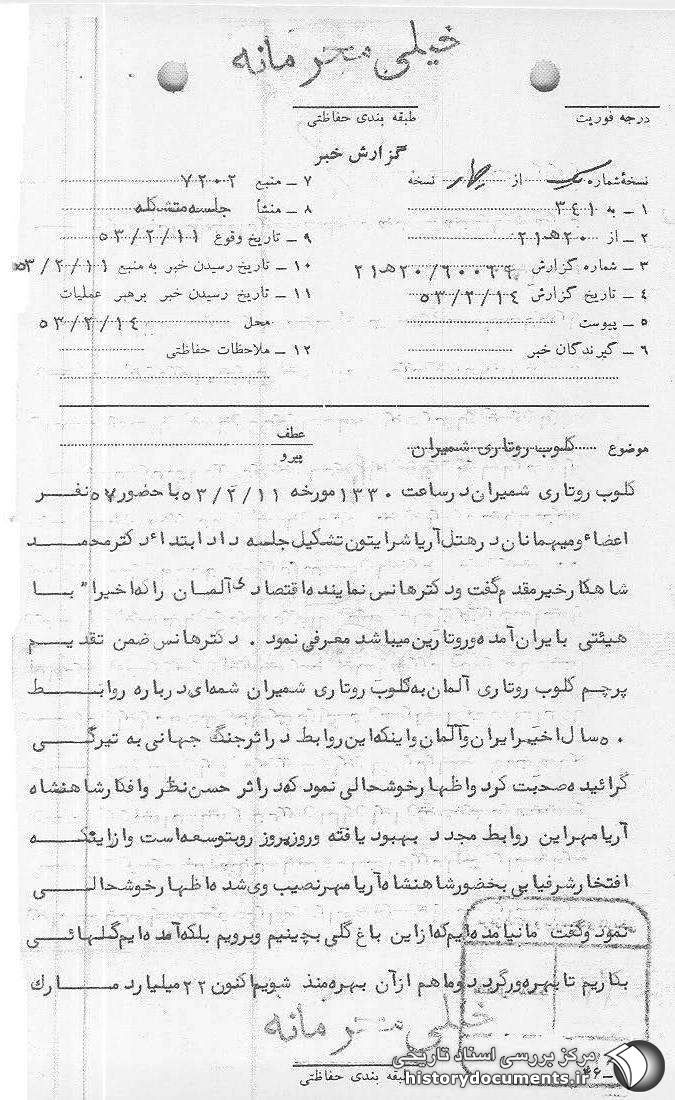 خیلی محرمانه
درجه فوریت
طبقه بندی حفاظتی
گزارش خبر
نسخهٔ شماره یک از چهار نسخه
۱ ـ به ۳۴۱
۲ ـ از ۲۰ ه‍ ۲۱
۳ ـ شماره گزارش
۴ ـ تاریخ گزارش ۵۳/۲/۱۴
۵ ـ پیوست
۶ ـ گیرندگان خبر
۷ ـ منبع ۷۲۰۲
۸ ـ منشأ جلسه متشکله
۹ ـ تاریخ وقوع ۵۳/۲/۱۱
۱۰ ـ تاریخ رسیدن خبر به منبع ۵۳/۲/۱۱
۱۱ ـ تاریخ رسیدن خبر برهبر عملیات
محل ۵۳/۲/۱۴
۱۲ ـ ملاحظات حفاظتی
موضوع کلوب روتاری شمیران
عطف
پیرو
کلوب روتاری شمیران در ساعت ۱۳۳۰ مورخه ۵۳/۲/۱۱ با حضور ۵۷ نفر
اعضاء و میهمانان در هتل آریا شرایتون تشکیل جلسه داد ابتدا دکتر محمد
شاهکار خیر مقدم گفت و دکتر هانس نماینده اقتصادی آلمان را که اخیرا" با
هیئتی بایران آمده و روتارین میباشد معرفی نمود . دکتر هانس ضمن تقدیم
پرچم کلوب روتاری آلمان به کلوب روتاری شمیران شمه‌ای درباره روابط
۵۰ سال اخیر ایران و آلمان و اینکه این روابط در اثر جنگ جهانی به تیرگی
گرائیده صحبت کرد و اظهار خوشحالی نمود که در اثر حسن نظر و افکار شاهنشاه
آریامهر این روابط مجدد بهبود یافته و روزبروز رو بتوسعه است و از اینکه
افتخار شرفیابی بحضور شاهنشاه آریامهر نصیب وی شده اظهار خوشحالی
نمود و گفت ما نیامده‌ایم که از این باغ گلی بچینیم و برویم بلکه آمده‌ایم گلهائی
بکاریم تا بهره‌ور گردد و ما هم از آن بهره‌مند شویم اکنون ۲۲ میلیارد مارک
خیلی محرمانه
طبقه بندی حفاظتی
مرکز بررسی اسناد تاریخی
historydocuments.ir